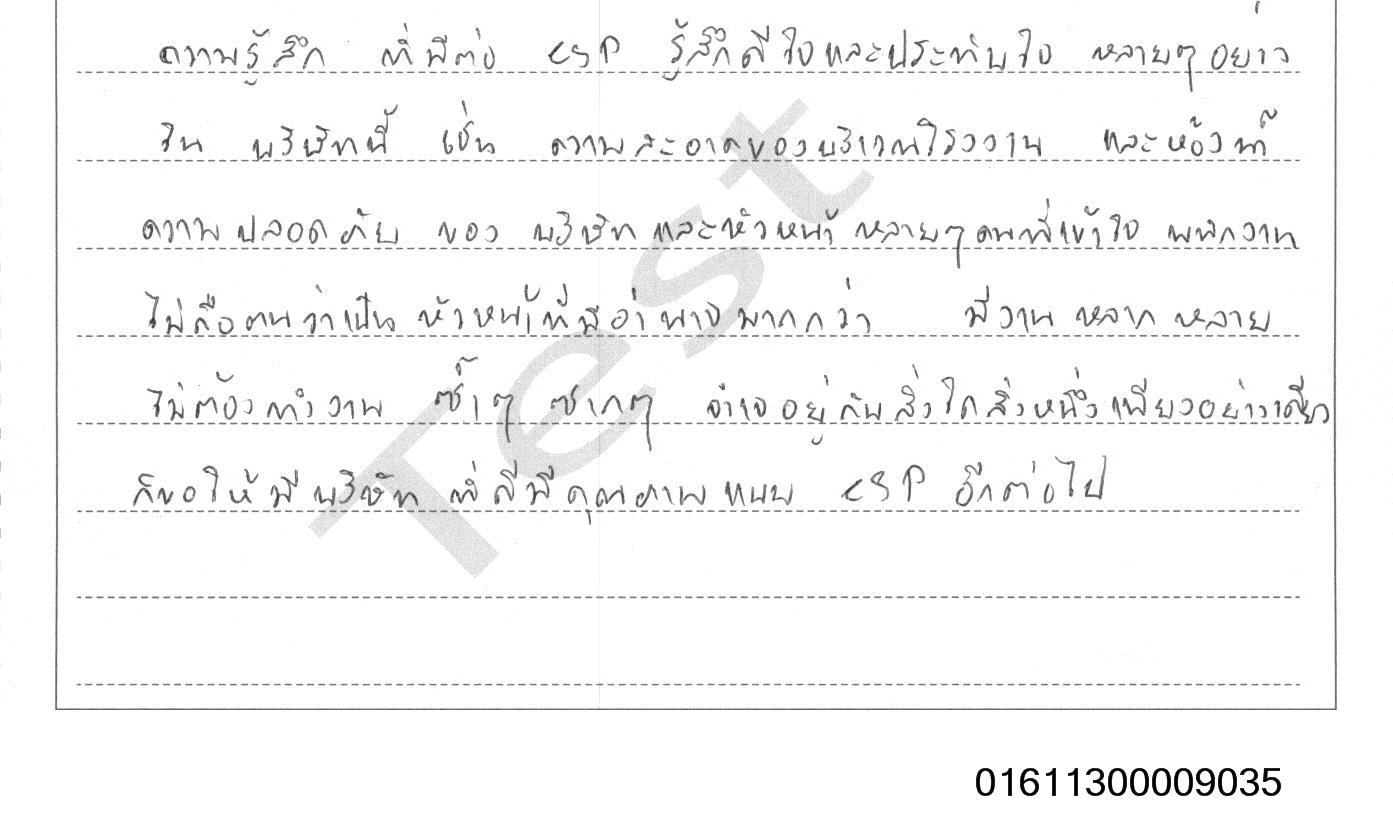 ความรู้สึก ที่มีต่อ CSP รู้สึกดีใจและประทับใจ หลายๆอย่าง
ใน บริษัทนี้ เช่น ความสะอาดของบริเวณโรงงาน และห้องน้ำ
ความปลอดภัย ของ บริษัทและหัวหน้าหลายๆคนที่เข้าใจ พนักงาน
ไม่ถือตนว่าเป็น หัวหน้าที่มีอำนาจมากกว่า มีงาน หลากหลาย
ไม่ต้องทำงาน ซ้ำๆ ซากๆ จำเจอยู่กับสิ่งใดสิ่งหนึ่งเพียงอย่างเดียว
ก็ขอให้มีบริษัท ที่ดีมีคุณภาพแบบ CSP อีกต่อไป
Test
01611300009035